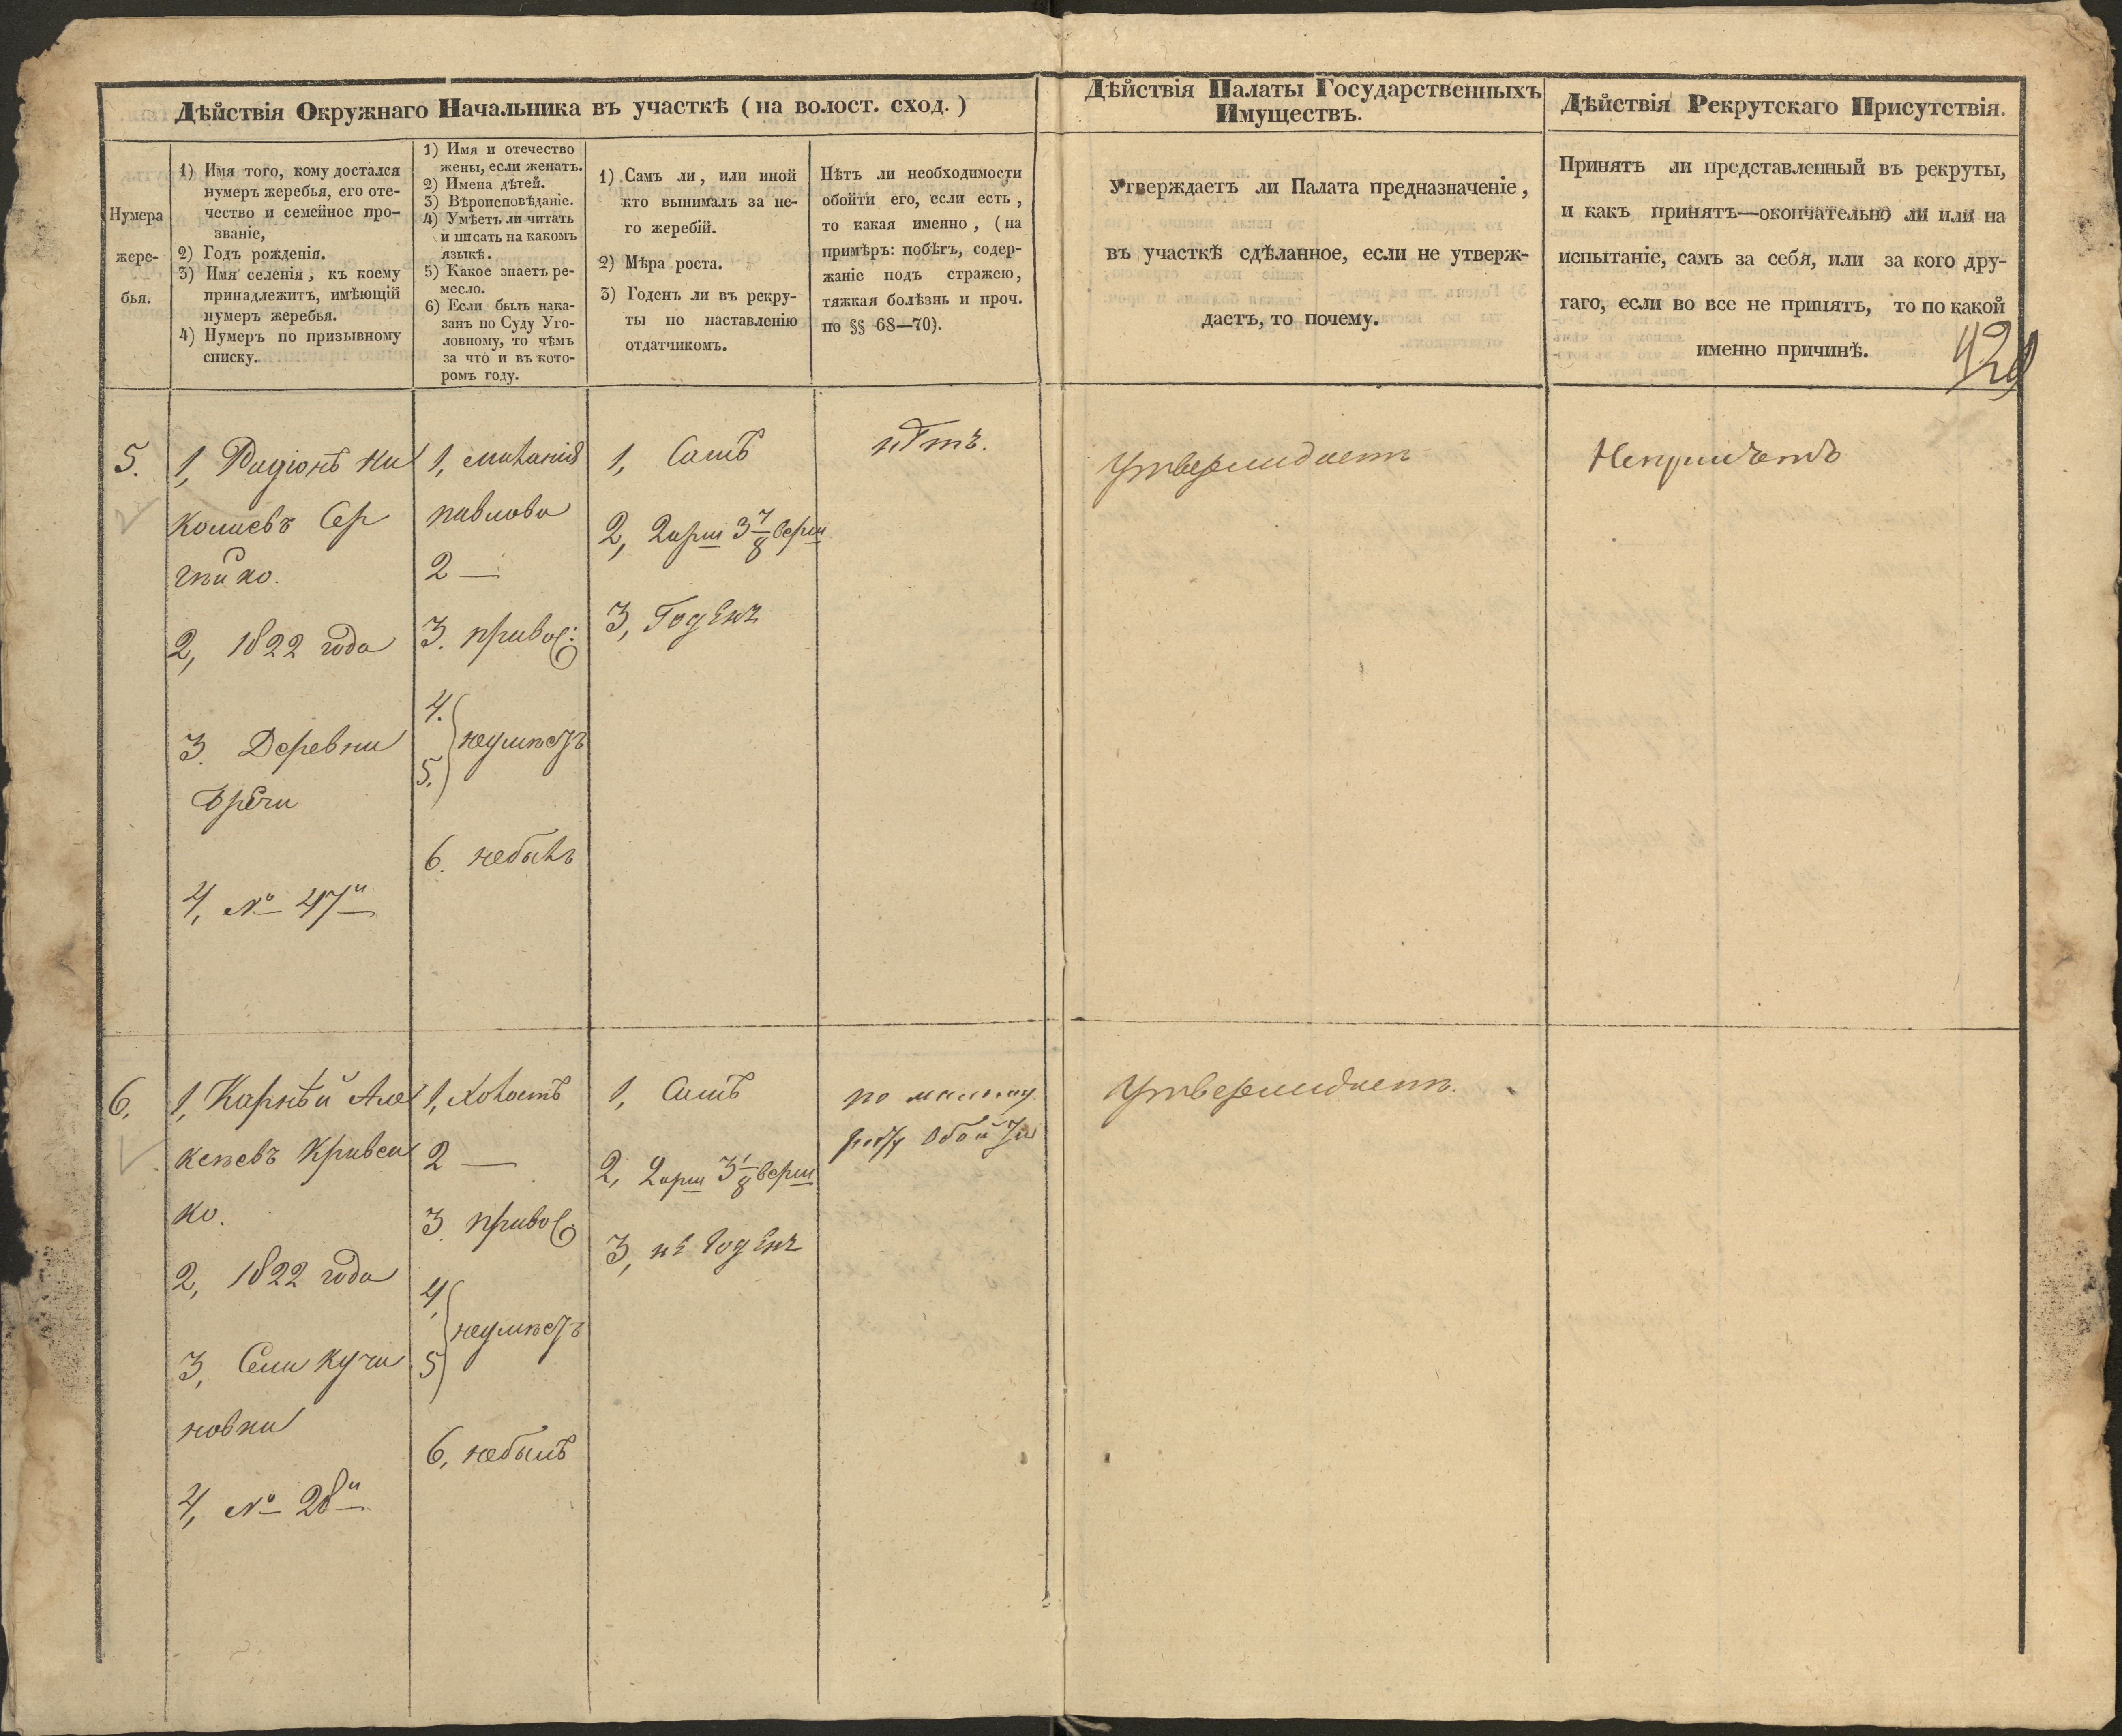 Дѣйствія Окружнаго Начальника въ участкѣ (на волост. сход.)
Дѣйствія Палаты Государственныхъ
Имуществъ.
Дѣйствія Рекрутскаго Присутствія.
Нумера
жере-
бья.
1) Имя того, кому достался
нумеръ жеребья, его оте-
чество и семейное про-
званіе,
2) Годъ рожденія.
3) Имя селенія, къ коему
принадлежитъ, имѣющій
нумеръ жеребья.
4) Нумеръ по призывному
списку.
1) Имя и отечество
жены, если женатъ.
2) Имена дѣтей.
3) Вѣроисповѣданіе.
4) Умѣетъ ли читать
и писать на какомъ
языкѣ.
5) Какое знаетъ ре-
месло.
6) Если былъ нака-
занъ по Суду Уго-
ловному, то чѣмъ
за что и въ кото-
ромъ году.
1) Самъ ли, или иной
кто вынималъ за не-
го жеребій.
2) Мѣра роста.
3) Годенъ ли въ рекру-
ты по наставленію
отдатчикомъ.
Нѣтъ ли необходимости
обойти его, если есть,
то какая именно, (на
примѣръ: побѣгъ, содер-
жаніе подъ стражею,
тяжкая болѣзнь и проч.
по §§ 68—70).
Утверждаетъ ли Палата предназначеніе,
въ участкѣ сдѣланное, если не утверж-
даетъ, то почему.
Принятъ ли представленный въ рекруты,
и какъ принятъ—окончательно ли или на
испытаніе, самъ за себя, или за кого дру-
гаго, если во все не принятъ, то по какой
именно причинѣ.
5.
1, Радіонъ Ни
колаевъ Сер
гѣйко.
2, 1822 года
3. Деревни
4, № 47й
1,
павлова
2 —
3. правос:
4.
5.
неумѣетъ
6. небылъ
1, Самъ
2, 2 арш 3 7/8 верш
3, Годенъ
нѣтъ.
Утверждаетъ
6.
1, Карнѣй Але
кѣевъ Кривен
ко.
2, 1822 года
3, Села Кучи
новки
4, № 28й
1, Холостъ
2 —
3. правос:
4,
5
неумѣетъ
6, небылъ
1, Самъ
2, 2 арш 3 1/8 верш
3, не годенъ
по малому
росту обойти
Утверждаетъ.